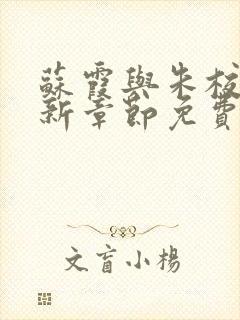 蘇霞與朱校
新章節免費
文盲小楊